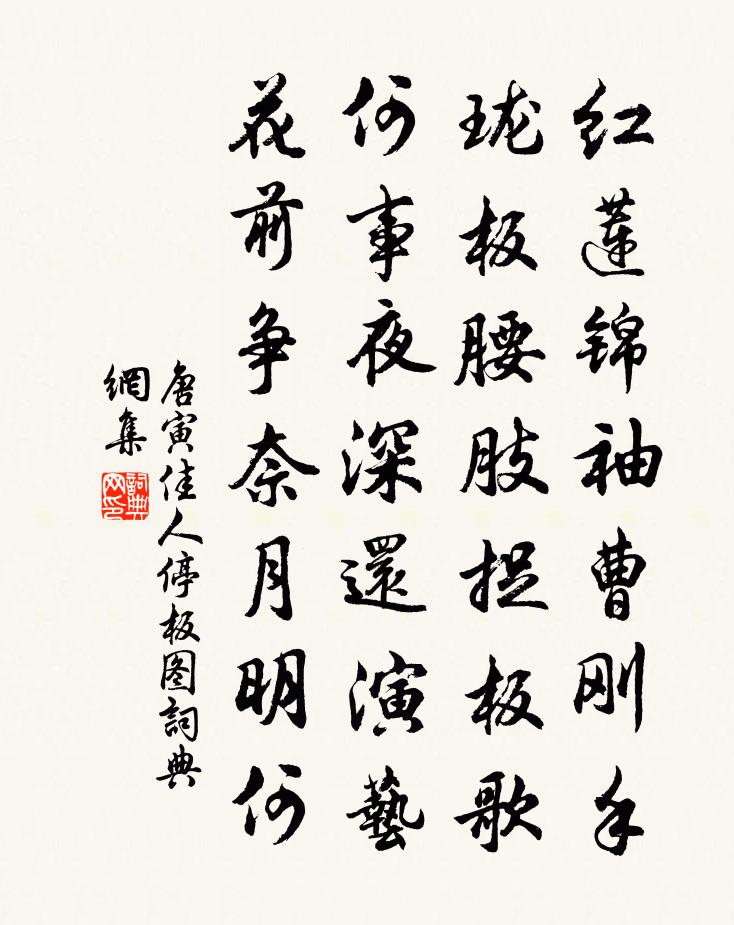 红莲锦袖曹刚手
珑板腰肢捉板歌
何事夜深還演藝
花前争奈月明何
唐寅佳人停板图詞典
網集
詞典
网印